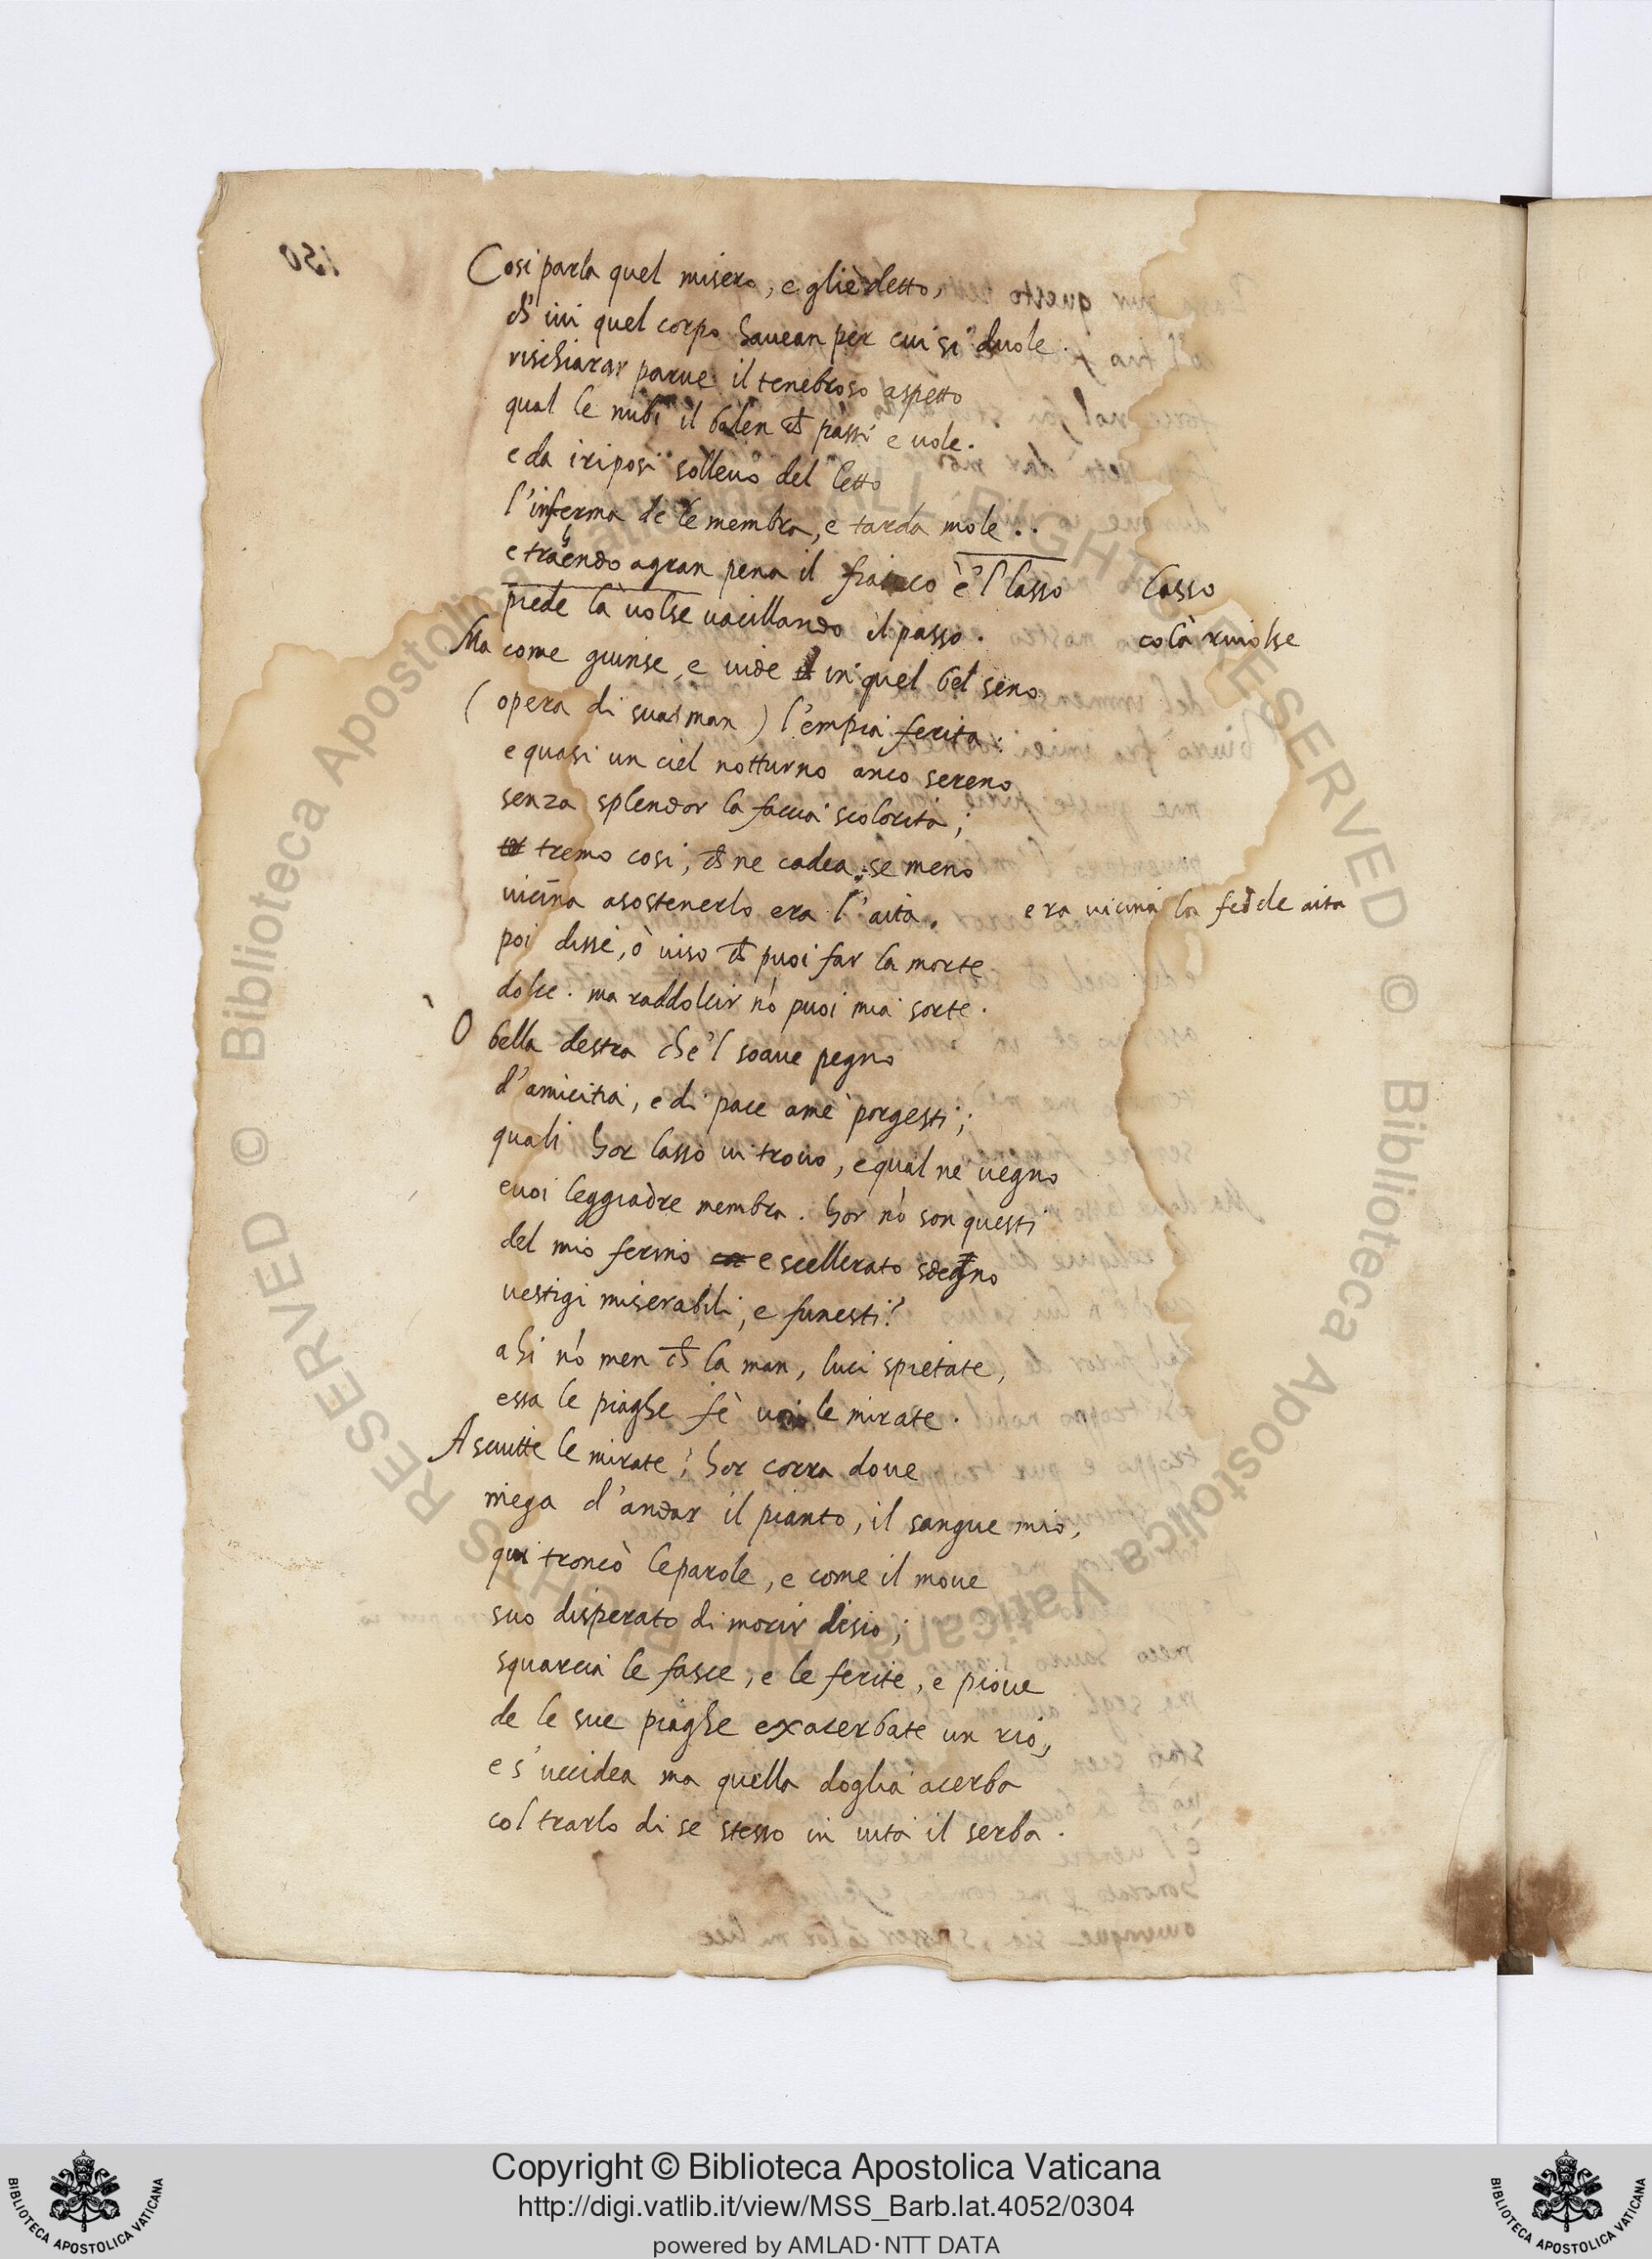 Cosi parla quel misero, e gliè detto,
ch' iui quel corpo hauean per cui si duole.
rischiarar parue il tenebroso aspetto
qual le nubi il balen ch passi e uole.
e da i riposi solleuò del letto
l'inferma de le membra, e tarda mole..
e trahendo a gran pena il fianco e'l lasso lasso
piede là uolse uacillando il passo. colà riuolse
Ma come giunse, e uide in quel bel seno
(opera di sua man) l'empia ferita:
e quasi un ciel notturno anco sereno
senza splendor la faccia scolorita;
tremò cosi, ch ne cadea, se meno
uicina a sostenerlo era l'aita. era uicina la fedele aita
poi disse, ò uiso ch puoi far la morte
dolce. ma raddolcir nō puoi mia sorte.
O bella destra che'l soaue pegno
d'amicitia, e di pace a me porgesti;
quali hor lasso ui trouo, e qual ne uegno
e uoi leggiadre membra. hor nō son questi
del mio ferino e scellerato sdegno
uestigi miserabili, e funesti?
ahi nō men ch la man, luci spietate,
essa le piaghe fè uoi le mirate.
Asciutte le mirate? hor corra doue
niega d'andar il pianto, il sangue mio,
qui troncò le parole, e come il moue
suo disperato di morir disio;
squarcia le fasce, e le ferite, e pioue
de le sue piaghe exacerbate un rio,
e s'uccidea ma quella doglia acerba
col trarlo di se stesso in uita il serba.
150
© Biblioteca Apostolica Vaticana ALL RIGHTS RESERVED
© Biblioteca Apostolica Vaticana ALL RIGHTS RESERVED
Copyright © Biblioteca Apostolica Vaticana
http://digi.vatlib.it/view/MSS_Barb.lat.4052/0304
powered by AMLAD·NTT DATA
BIBLIOTECA APOSTOLICA VATICANA
BIBLIOTECA APOSTOLICA VATICANA